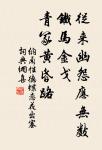 從來幽怨應無數
鐵馬金戈
青冢黃昏路
納蘭性德蝶戀花出塞
詞典網喜